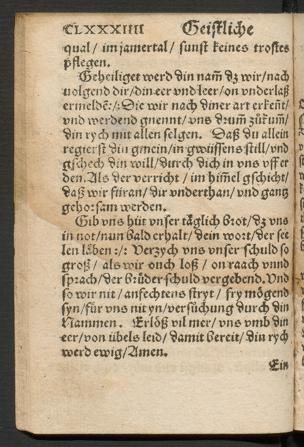 CLXXXIIII Geistliche
qual/ im jamertal/ sunst keines trostes
pflegen.
Geheiliget werd din nam̃ dz wir/nach
uolgend dir/din eer vnd leer/on vnderlaß
ermeldẽ:/: Die wir nach diner art erkeñt/
vnd werdend gnennt/vns dꝛum̃ zůrum̃/
din rych mit allen selgen. Daß du allein
regierst din gmein/in gwüssens still/vnd
gschech din will/durch dich in vns vff er
den. Als der verricht/ im him̃el gschicht/
daß wir stiran/ dir vnderthan/vnd gantz
gehoꝛsam werden.
Gib vns hüt vnser täglich bꝛot/dz vns
in not/nun bald erhalt/dein wort/der see
len läben:/: Verzych vns vnser schuld so
groß/ als wir ouch loß/ on raach vnnd
spꝛach/der bꝛüder schuld vergebend. Vnd
so wir nit/anfechtens stryt/ fry mögend
syn/für vns nit yn/versůchung durch din
Nammen. Erlöß vil mer/vns vmb din
eer/von übels leid/ damit bereit/din rych
werd ewig/Amen.
Ein